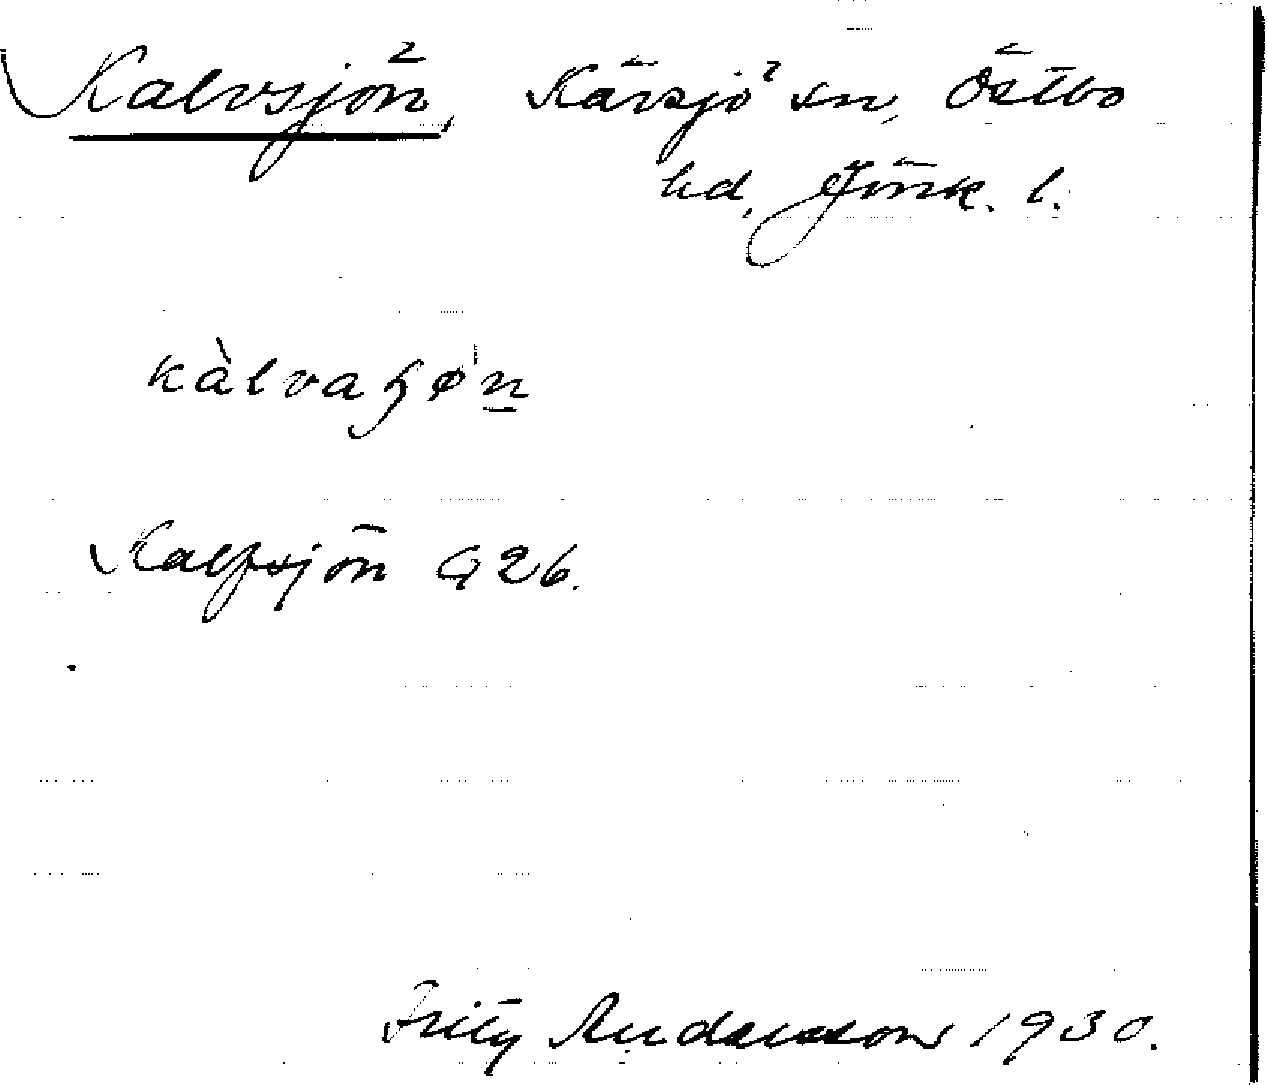 Kalvsjön, Kävsjö sn, Östbo
hd, Jönk. l.
kàlvaɧøn
Kalfsjön G 26.
Fritz Andersson 1930.